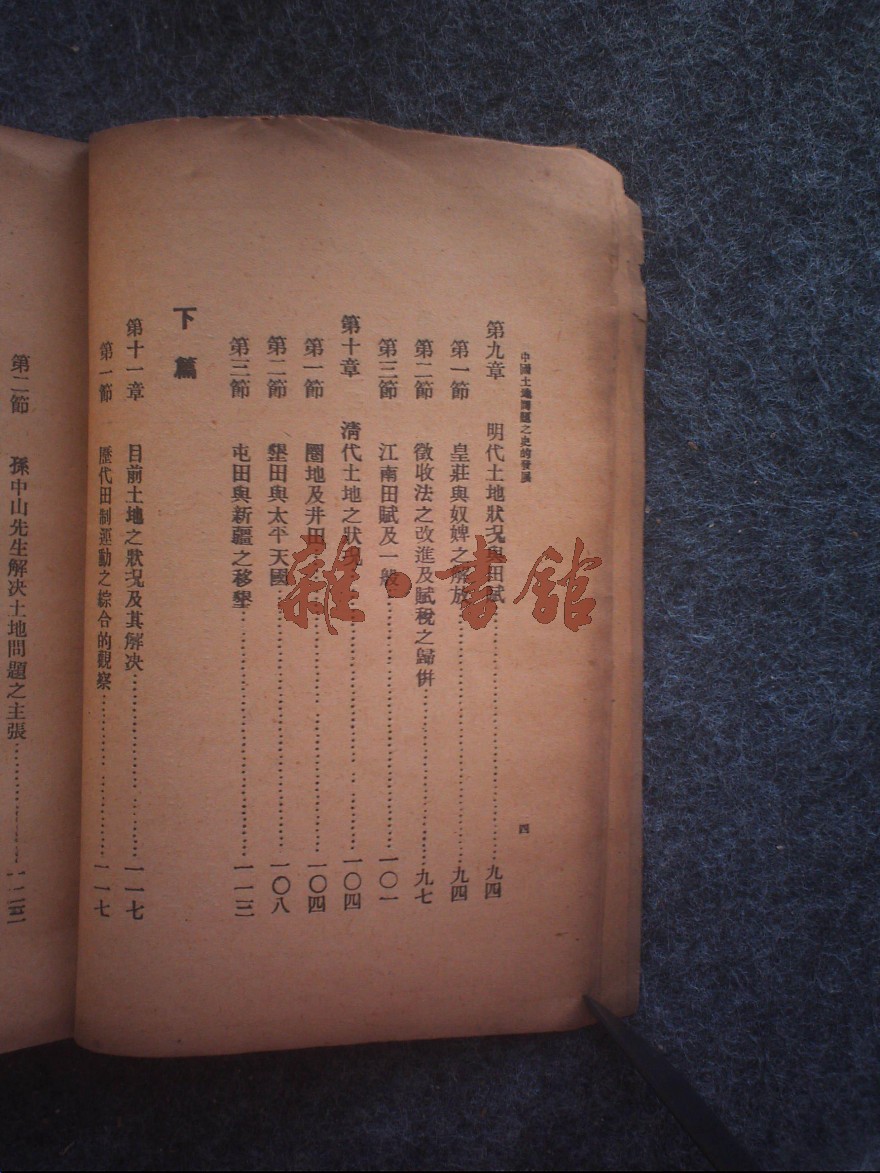 中國土地問題之史的發展
四
第九章 明代土地狀況與田賦……九四
第一節 皇莊與奴婢之解放……九四
第二節 徵收法之改進及賦稅之歸併……九七
第三節 江南田賦及一般……一〇一
第十章 清代土地之狀況……一〇四
第一節 圈地及井田……一〇四
第二節 墾田與太平天國……一〇八
第三節 屯田與新疆之移墾……一一三
下篇
第十一章 目前土地之狀況及其解决……一一七
第一節 歷代田制運動之綜合的觀察……一一七
第二節 孫中山先生解决土地問題之主張……
雜·書館